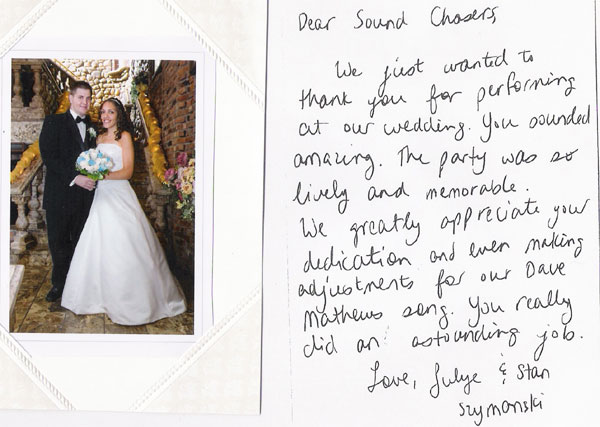 Dear Sound Chasers,
We just wanted to
thank you for performing
at our wedding. You sounded
amazing. The party was so
lively and memorable.
We greatly appreciate your
dedication and even making
adjustments for our Dave
Mathews song. You really
did an astounding job.
Love, Julye & Stan
Szymanski